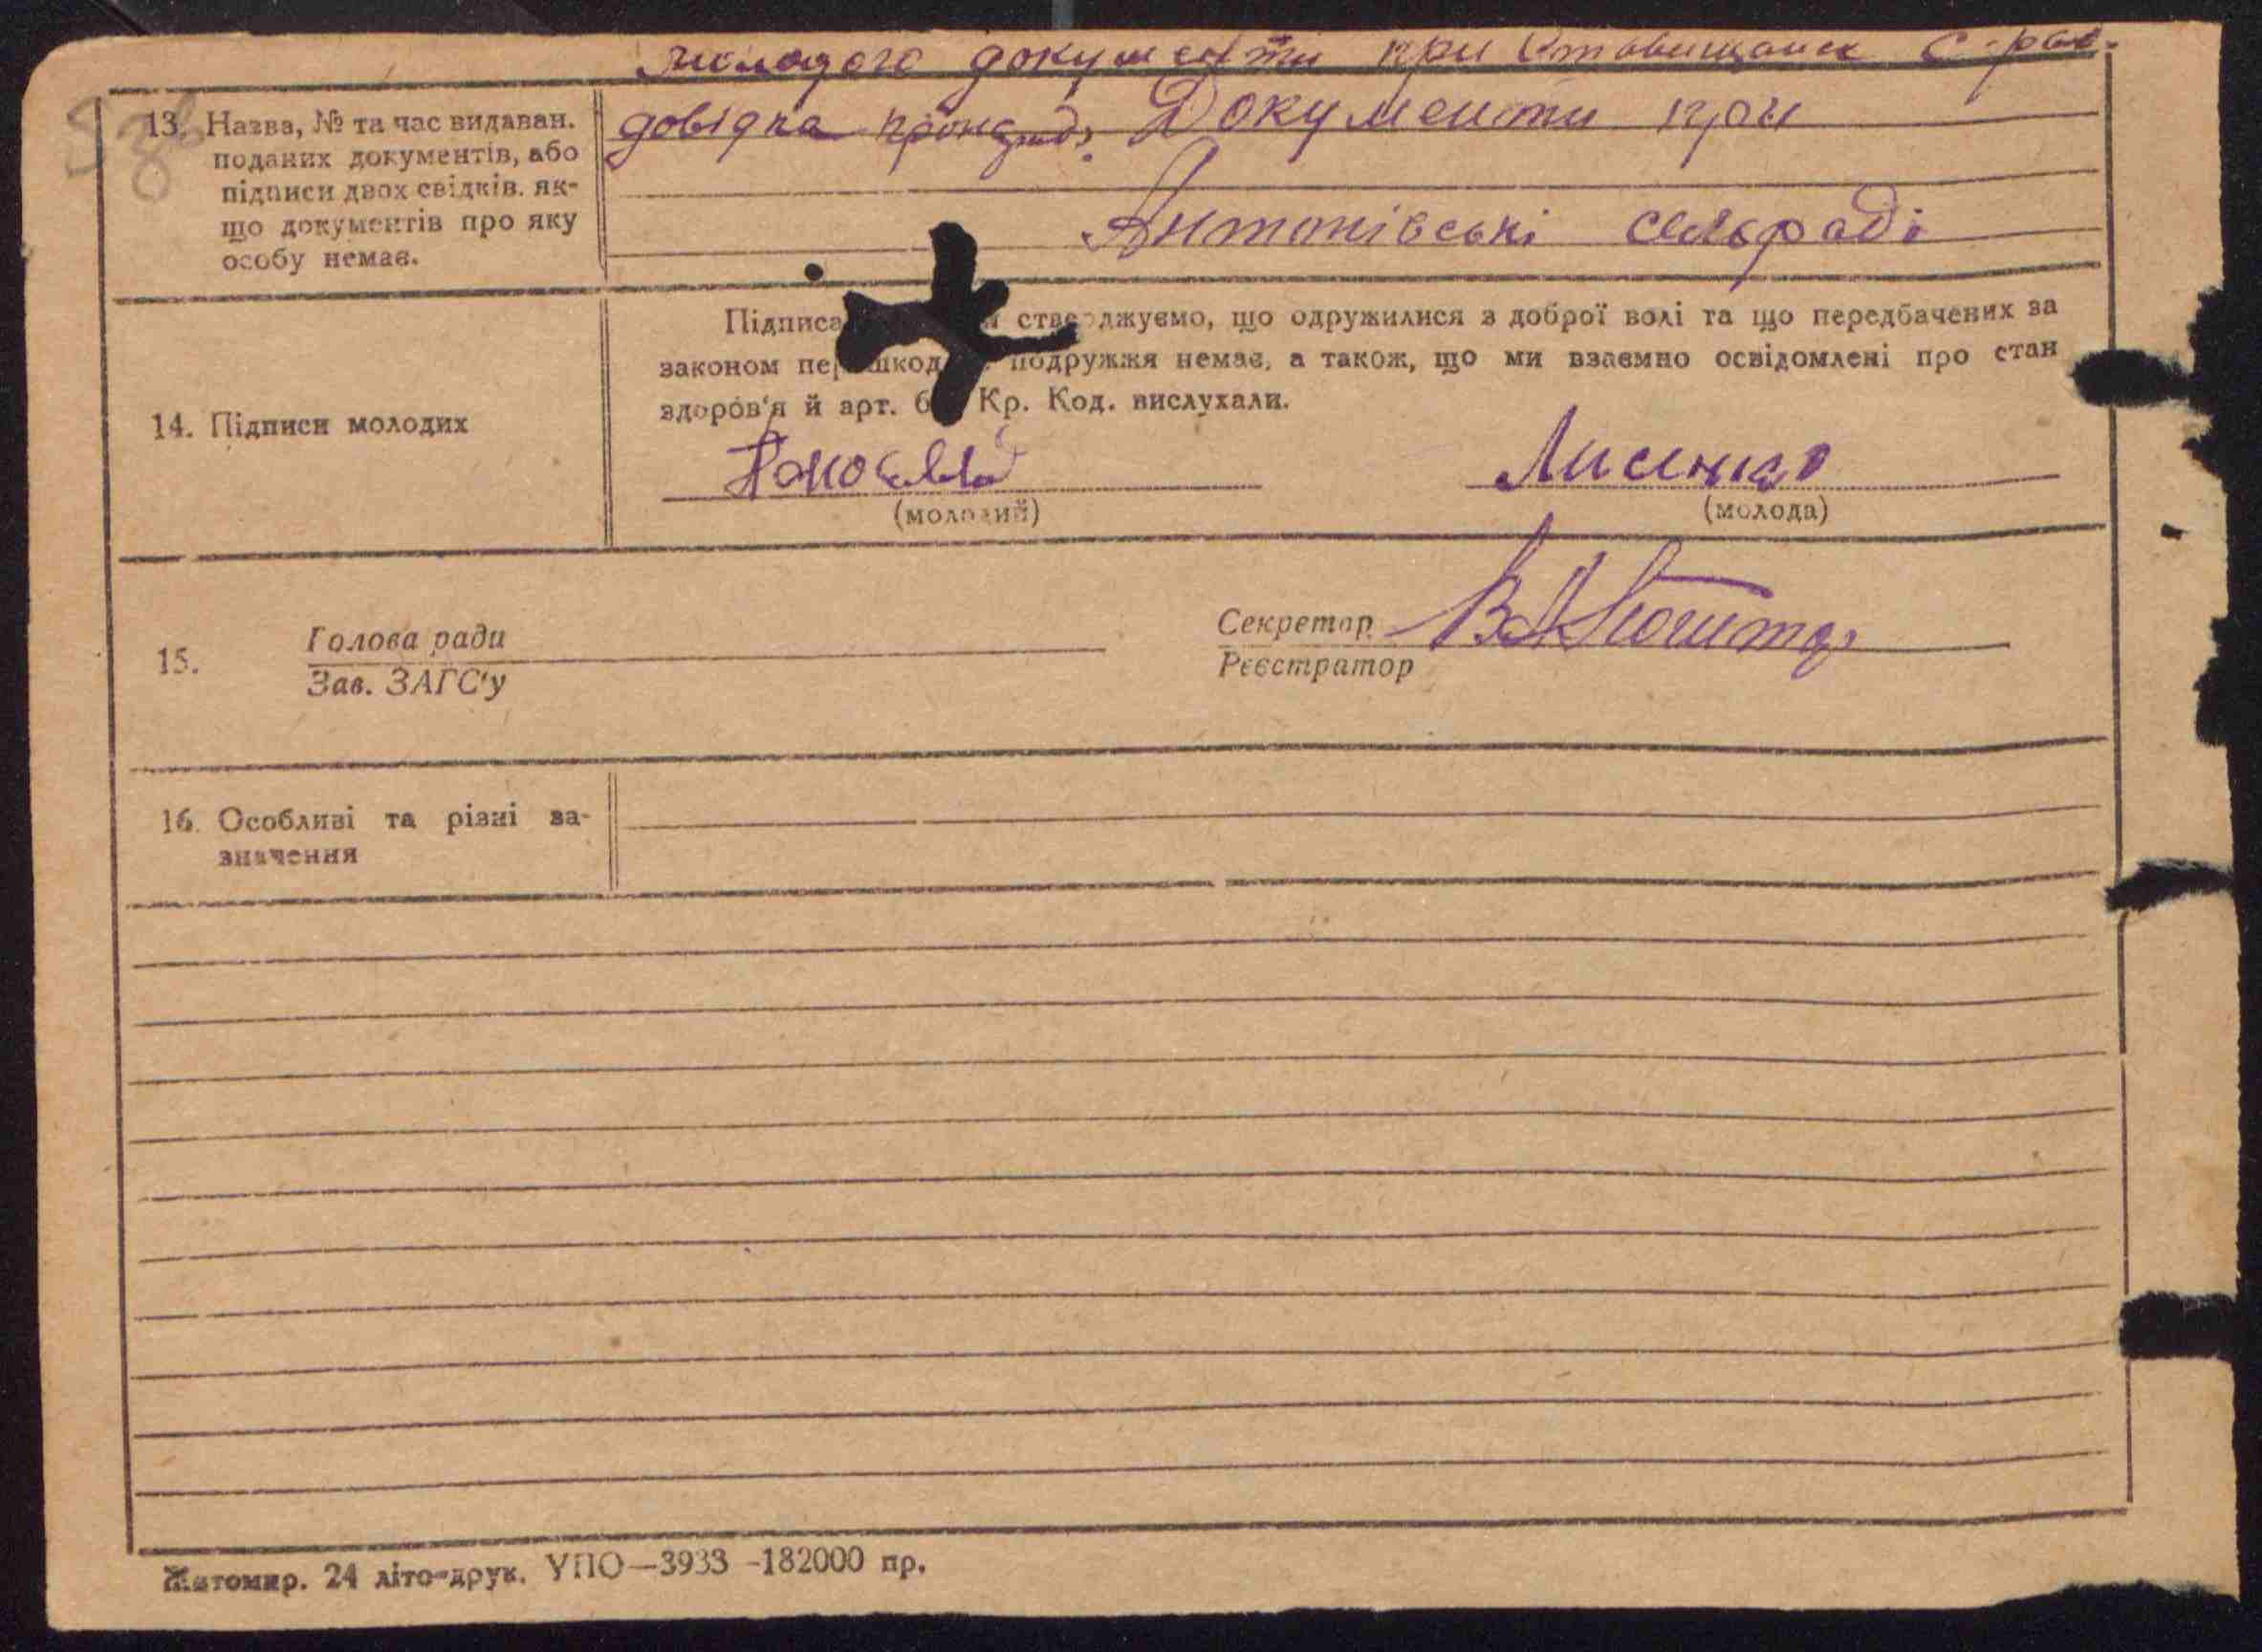 молодого документи при Ставищанск с-рад.
13. Назва, № та час видаван.
поданих документів, або
підписи двох свідків. як-
що документів про яку
особу немає.
довідка Документи при
Антонівські сельраді
Підписа стверджуємо, що одружилися з доброї волі та що передбачених за
законом перешкод подружжя немає, а також, що ми взаємно освідомлені про стан
здоров'я й арт. 6 Кр. Код. вислухали.
14. Підписи молодих
Лисенко
(молодий) (молода)
15. Голова ради
Зав. ЗАГС'у
Секретар
Реєстратор
16. Особливі та різні за-
значення
Житомир. 24 літо-друк. УПО—3933 -182000 пр.